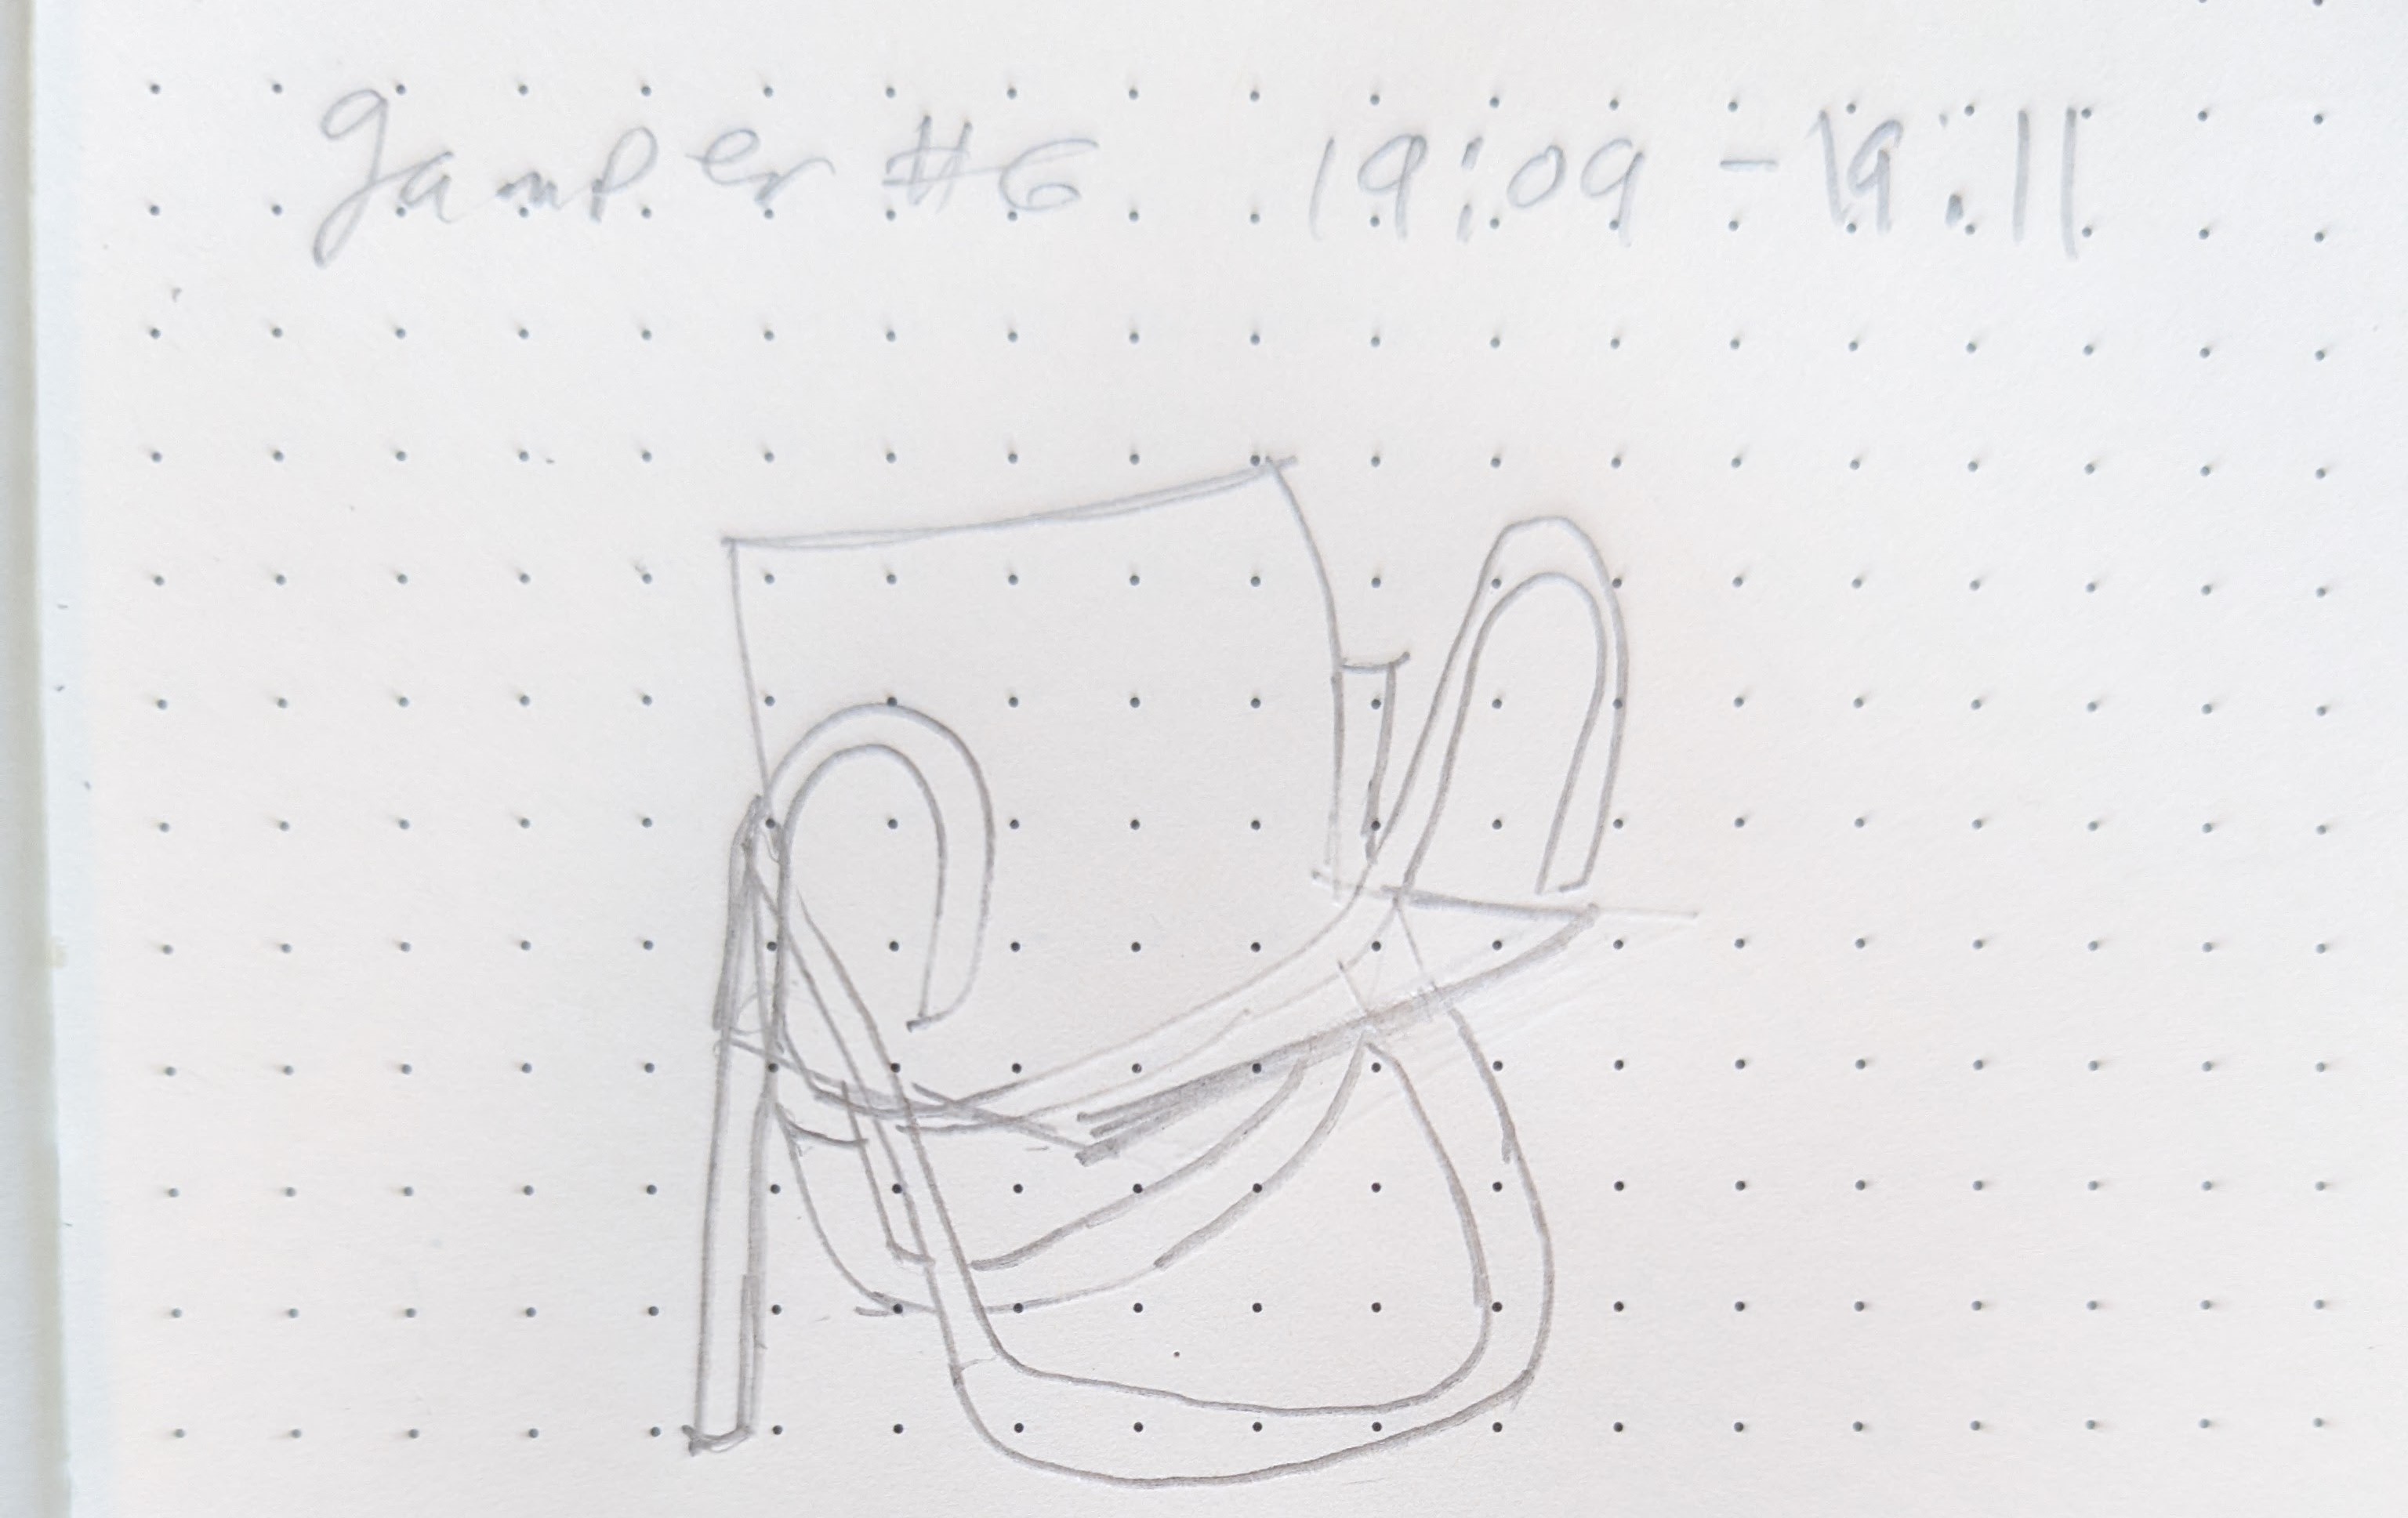 gamper #6 19:09 - 19:11